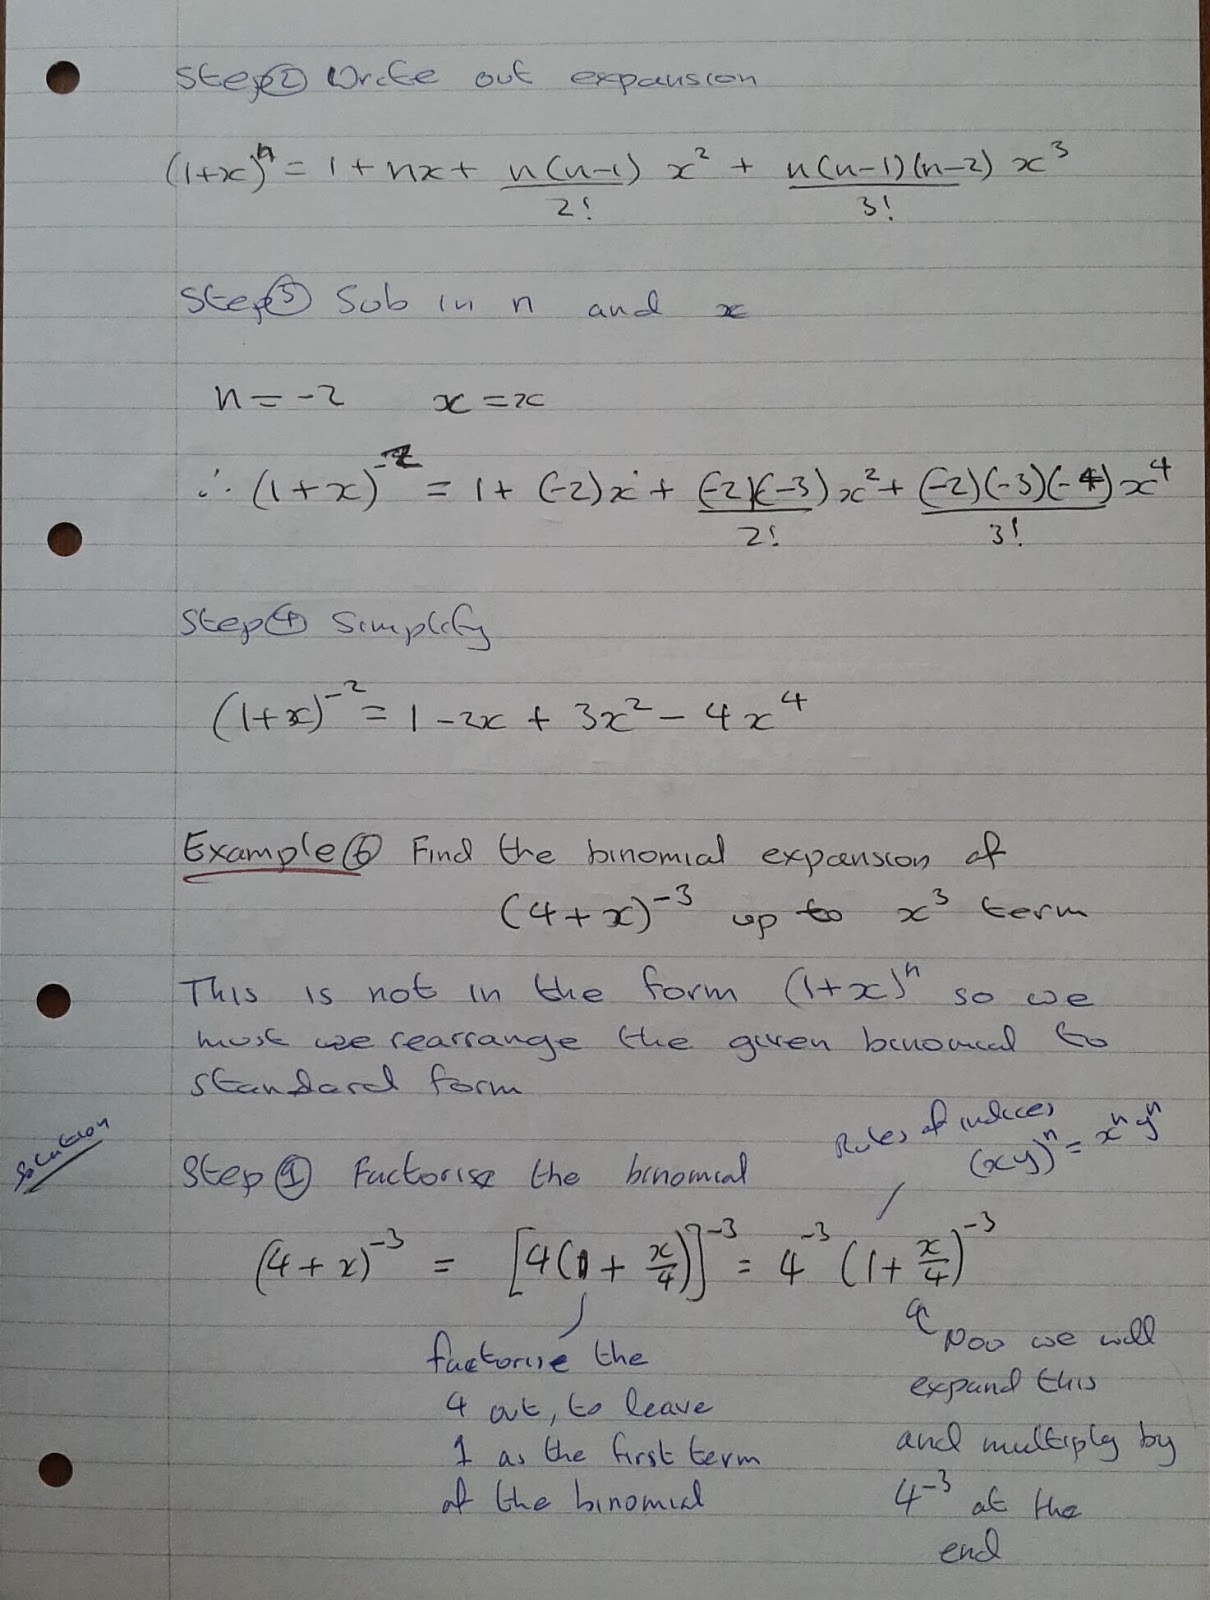 Step ② Write out expansion
(1+x)^n = 1 + nx + n(n-1)/2! x^2 + n(n-1)(n-2)/3! x^3
Step ③ Sub in n and x
n = -2 x = x
∴ (1+x)^-2 = 1 + (-2)x + (-2)(-3)/2! x^2 + (-2)(-3)(-4)/3! x^4
Step ④ Simplify
(1+x)^-2 = 1 - 2x + 3x^2 - 4x^4
Example ⑥ Find the binomial expansion of
(4+x)^-3 up to x^3 term
This is not in the form (1+x)^n so we
must we rearrange the given binomial to
standard form
Solution
Rules of indices
(xy)^n = x^n y^n
Step ① Factorise the binomial
(4+x)^-3 = [4(1 + x/4)]^-3 = 4^-3 (1 + x/4)^-3
factorise the
4 out, to leave
1 as the first term
of the binomial
Now we will
expand this
and multiply by
4^-3 at the
end